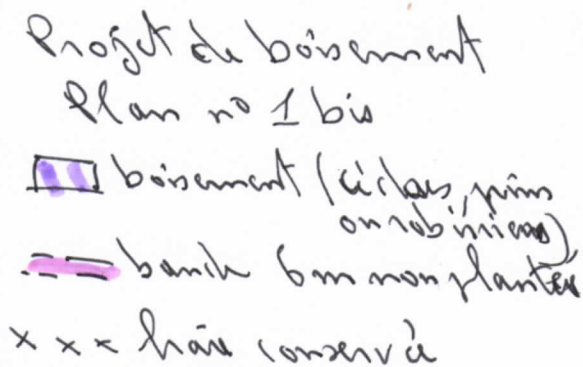 Projet de boisement
Plan nº 1 bis
boisement (cèdres, pins
ou robiniers)
bande 6m non plantée
x x x haie conservée